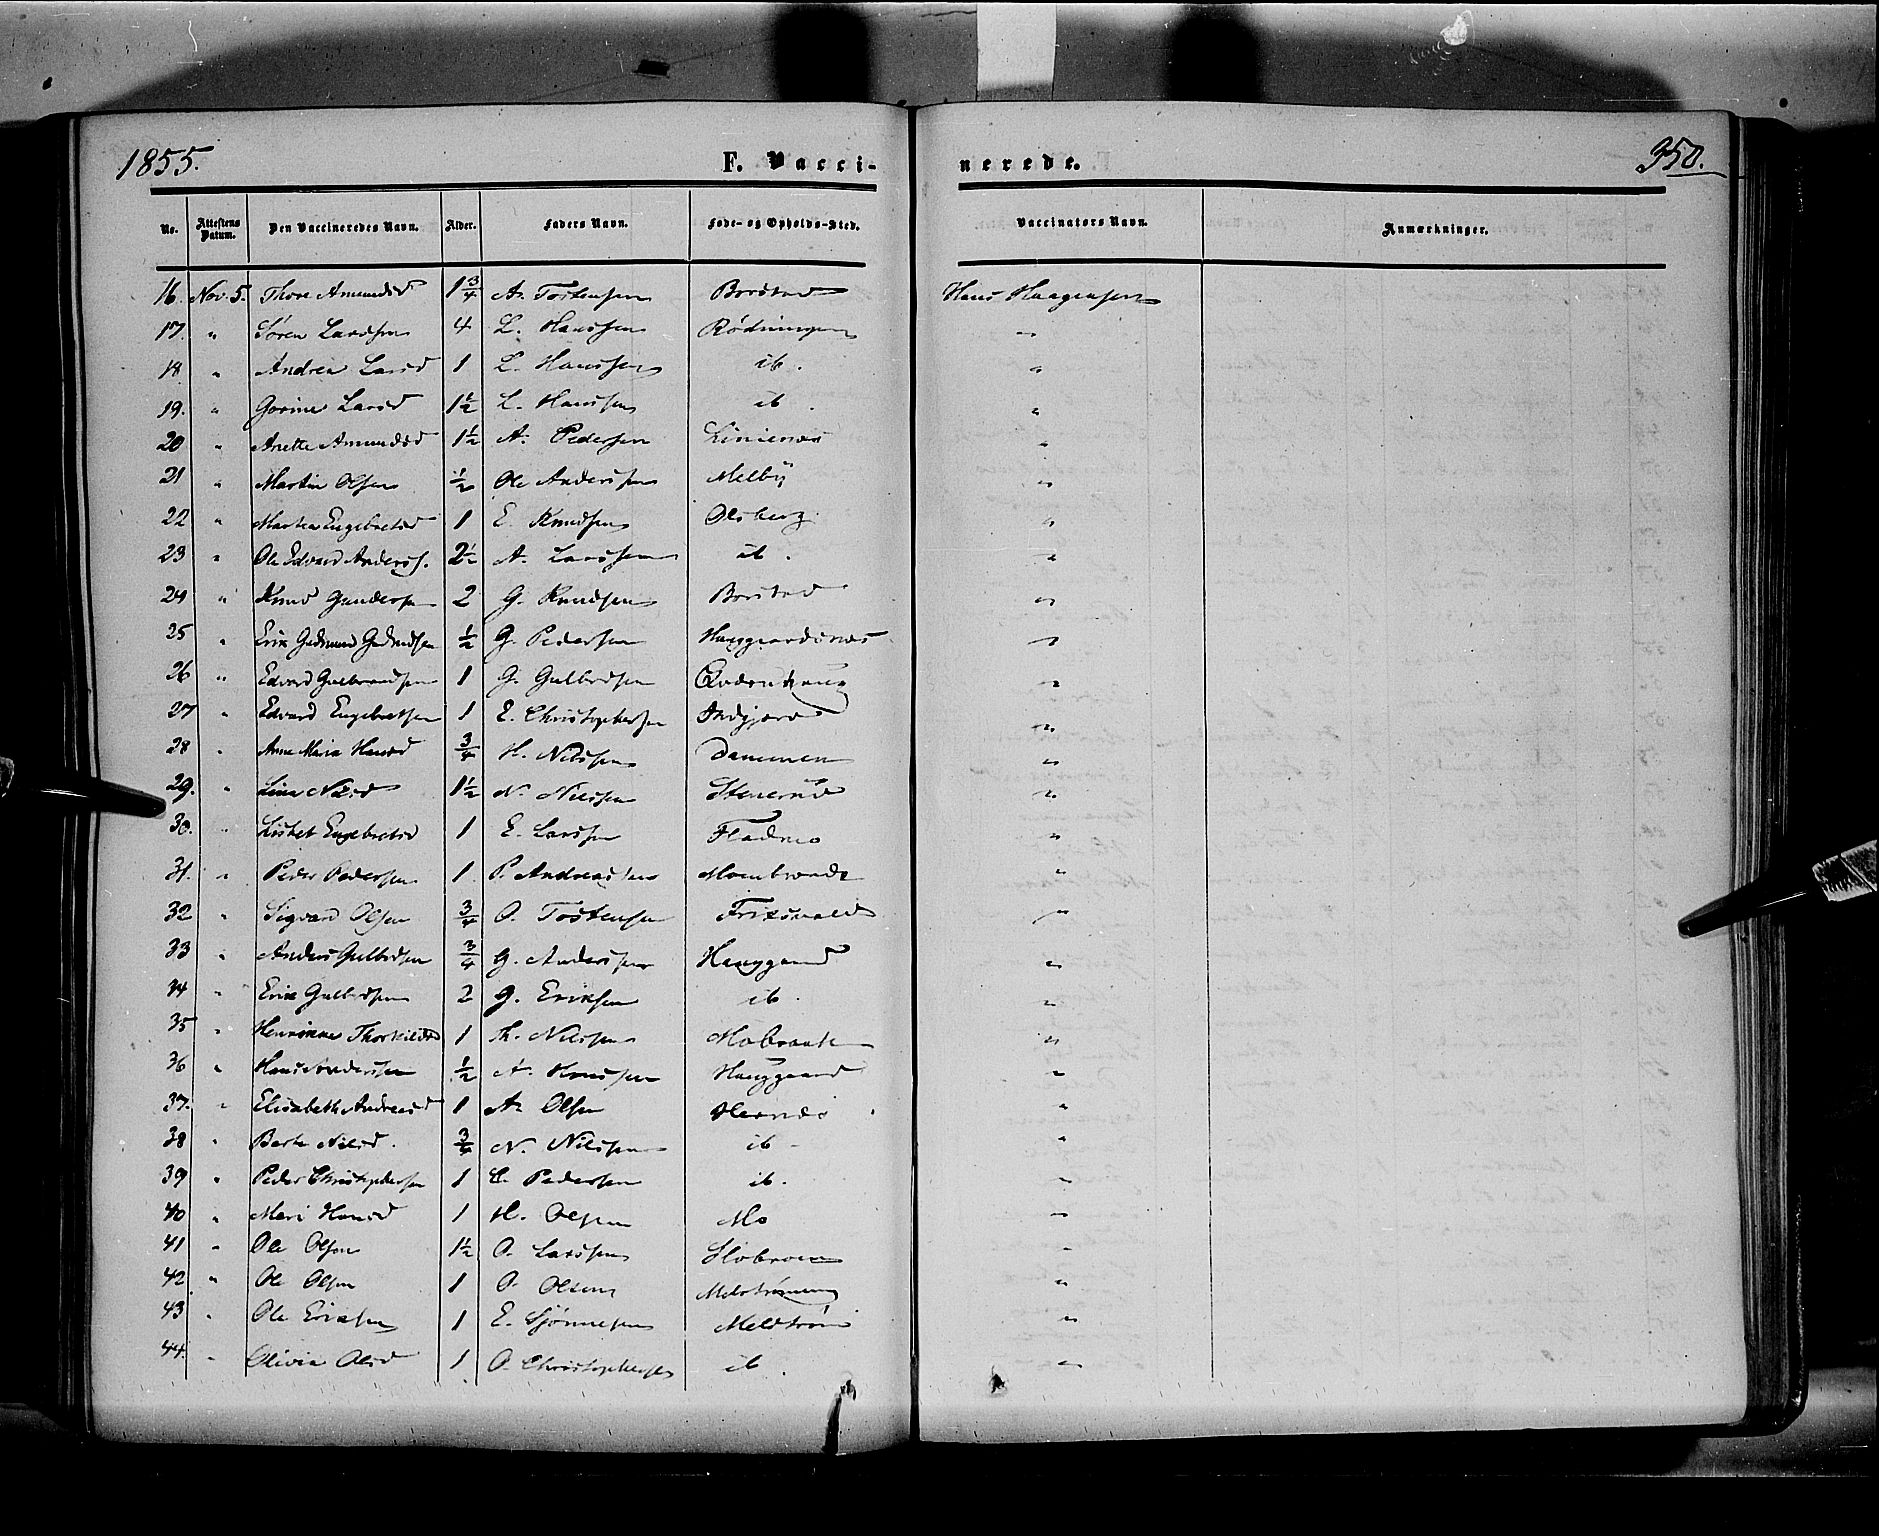 1855.
F. Vacci-
nerede.
350.
No. Attestens Datum. Den Vaccineredes Navn. Alder. Faders Navn. Føde- og Opholds-Sted. Vaccinators Navn. Anmærkninger.
16. Nov. 5. Thore Amundsd 1 3/4 A. Tostensen Borstad Hans Haagensen
17. " Søren Larssen 4 L. Hanssen Rødningen "
18 " Andrea Larsd 1 L. Hanssen ib. "
19. " Gorine Larsd 1 1/2 L. Hanssen ib. "
20 " Anette Amundsd 1 1/2 A. Pedersen Linienæs "
21 " Martin Olsen 1/2 Ole Anderssen Melby "
22 " Marthea Engebretsd 1 E. Knudsen Olsberg "
23 " Ole Edvard Anderss. 2 1/2 A. Larssen ib. "
24 " Knud Gundersen 2 G. Knudsen Borstad "
25 " Erik Gudmund 1/2 G. Pedersen Hauggaardsnæs "
26 " Edvard Gulbrandsen 1 G. Gulbrdsen "
27 " Edvard Engebretsen 1 E. Christophersen Indgjord "
28 " Anne Maria Hansd 3/4 H. Nilssen Dammen "
29. " Lina Nilsd 1 1/2 N. Nilssen Stenerud "
30. " Lisbet Engebretsd 1 E. Larssen Fladmo "
31. " Peder Pedersen 1 P. Andreassen "
32 " Sigvard Olsen 3/4 O. Tostensen Fritsvold "
33 " Anders Gulbrdsen 3/4 G. Anderssen Hauggaard "
34 " Erik Gulbrdsen 2 G. Eriksen ib. "
35 " Henrikke Thorkildsd 1 Th. Nilssen Mobraaten "
36 " Hans Anderssen 1/2 A. Hanssen Hauggaard "
37. " Elisabeth Andreasd 1 A. Olsen Hernæs "
38 " Berte Nilsd. 3/4 N. Nilssen ib "
39 " Peder Christophersen 1 C. Pedersen ib. "
40 " Mari Hansd 1 H. Olsen Mo "
41 " Ole Olsen 1 1/2 O. Larssen "
42 " Ole Olsen 1 O. Olsen "
43 " Ole Eriksen 1 E. Sjønnesen Melstrøm "
44. " Olivia Olsd 1 O. Christophersen ib. "